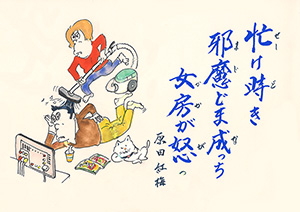 忙け時き
邪魔どま成っち
女房が怒っ
原田紅梅